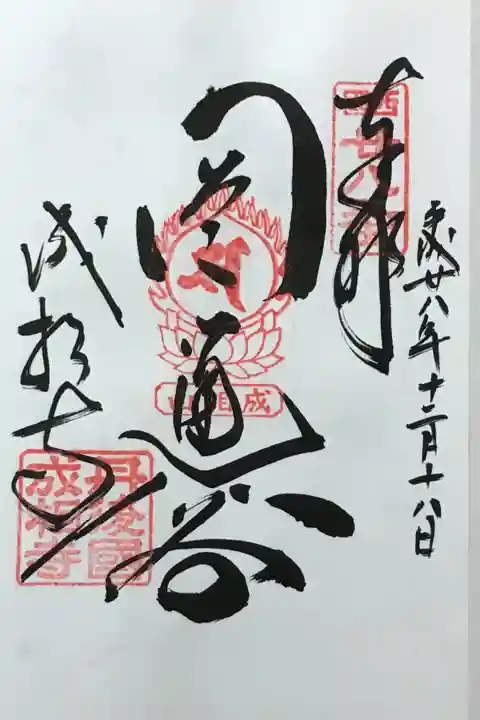 平成廿八年十二月十八日
奉拝
西廿八番
圓通閣
成相山
成相寺
丹後國
成相寺